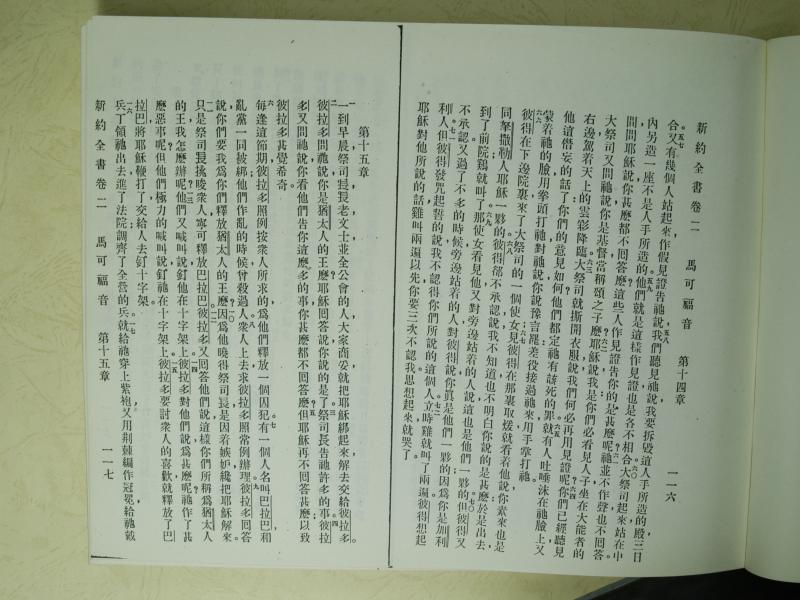 新約全書卷二　馬可福音　第十四章　一一六
合又有幾個人站起來作假見證告祂說我們聽見祂說我要拆毀這人手所造的殿三日
內另造一座不是人手所造的他們就是這樣作見證也是各不相合大祭司起來站在中
間問耶穌說你甚麼都不回答麼這些人作見證告你的是甚麼呢祂並不作聲也不回答
大祭司又問祂說你是基督當稱頌之子麼耶穌說我是你們必看見人子坐在大能者的
右邊駕着天上的雲彩降臨大祭司就撕開衣服說我們何必再用見證呢你們已經聽見
他這僭妄的話了你們的意見如何他們都定祂有該死的罪就有人吐唾沫在祂臉上又
蒙着祂的臉用拳頭打祂對祂說你說豫言罷差役接過祂來用手掌打祂
彼得在下邊院裏來了大祭司的一個使女見彼得在那裏取煖就看着他說你素來也是
同拏撒勒人耶穌一夥的彼得卻不承認說我不知道也不明白你說的是甚麼於是出去
到了前院鷄就叫了那使女看見他又對旁邊站着的人說這也是他們一夥的但彼得又
不承認又過了不多的時候旁邊站着的人對彼得說你眞是他們一夥的因爲你是加利
利人但彼得發咒起誓的說我不認得你們所說的這個人立時鷄就叫了兩遍彼得想起
耶穌對他所說的話雞叫兩遍以先你要三次不認我思想起來就哭了
第十五章
一到早晨祭司長長老文士並全公會的人大家商妥就把耶穌綁起來解去交給彼拉多
彼拉多問祂說你是猶太人的王麼耶穌回答說你說的是了祭司長告祂許多的事彼拉
多又問祂說你看他們告你這麼多的事你甚麼都不回答麼但耶穌再不回答甚麼以致
彼拉多甚覺希奇
每逢這節期彼拉多照例按衆人所求的爲他們釋放一個囚犯有一個人名叫巴拉巴和
亂黨一同被綁他們作亂的時候曾殺過人衆人上去求彼拉多照常例辦理彼拉多回答
說你們要我爲你們釋放猶太人的王麼因爲他曉得祭司長是因着嫉妒纔把耶穌解來
只是祭司長挑唆衆人寧可釋放巴拉巴彼拉多又回答他們說這樣你們所稱爲猶太人
的王我怎麼辦呢他們又喊叫說釘他在十字架上彼拉多對他們說爲甚麼呢祂作了甚
麼惡事呢但他們極力的喊叫說釘他在十字架上彼拉多要討衆人的喜歡就釋放了巴
拉巴將耶穌鞭打了交給人去釘十字架
兵丁領祂出去進了法院調齊了全營的兵就給祂穿上紫袍又用荆棘編作冠冕給祂戴
新約全書卷二　馬可福音　第十五章　一一七